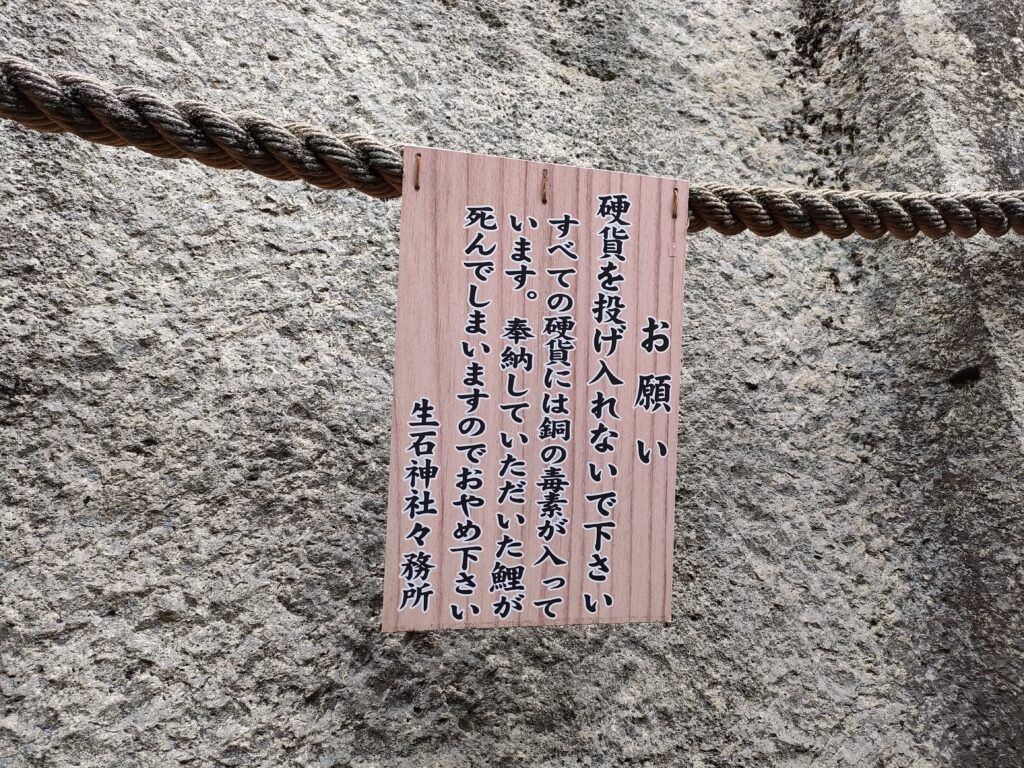 お願い
硬貨を投げ入れないで下さい
すべての硬貨には銅の毒素が入って
います。奉納していただいた鯉が
死んでしまいますのでおやめ下さい
生石神社々務所